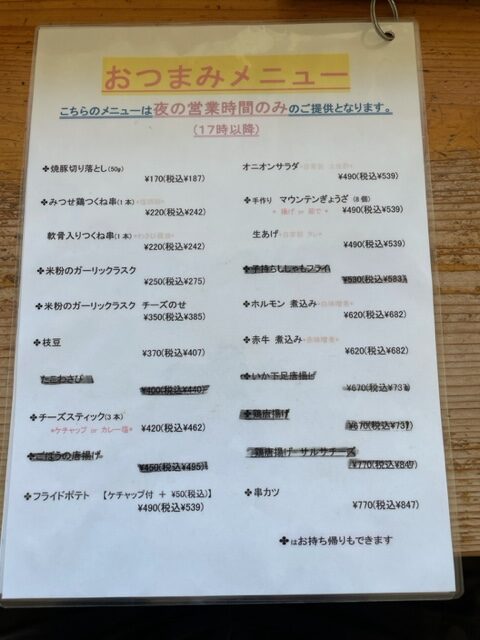 おつまみメニュー
こちらのメニューは夜の営業時間のみのご提供となります。
(17時以降)
✤焼豚切り落とし(50g)
¥170(税込¥187)
✤みつせ鶏つくね串(1本)
¥220(税込¥242)
軟骨入りつくね串(1本)
¥220(税込¥242)
✤米粉のガーリックラスク
¥250(税込¥275)
✤米粉のガーリックラスク チーズのせ
¥350(税込¥385)
✤枝豆
¥370(税込¥407)
たこわさび
¥400(税込¥440)
✤チーズスティック(3本)
*ケチャップ or カレー塩*
¥420(税込¥462)
✤ごぼうの唐揚げ
¥450(税込¥495)
✤フライドポテト 【ケチャップ付 + ¥50(税込)】
¥490(税込¥539)
オニオンサラダ
¥490(税込¥539)
✤手作り マウンテンぎょうざ(8個)
* 揚げ or 茹で *
¥490(税込¥539)
生あげ
¥490(税込¥539)
✤子持ちししゃもフライ
¥530(税込¥583)
✤ホルモン 煮込み*白味噌煮*
¥620(税込¥682)
✤赤牛 煮込み*赤味噌煮*
¥620(税込¥682)
✤いか下足唐揚げ
¥670(税込¥737)
✤鶏唐揚げ
¥670(税込¥737)
鶏唐揚げ サルサチーズ
¥770(税込¥847)
✤串カツ
¥770(税込¥847)
✤はお持ち帰りもできます